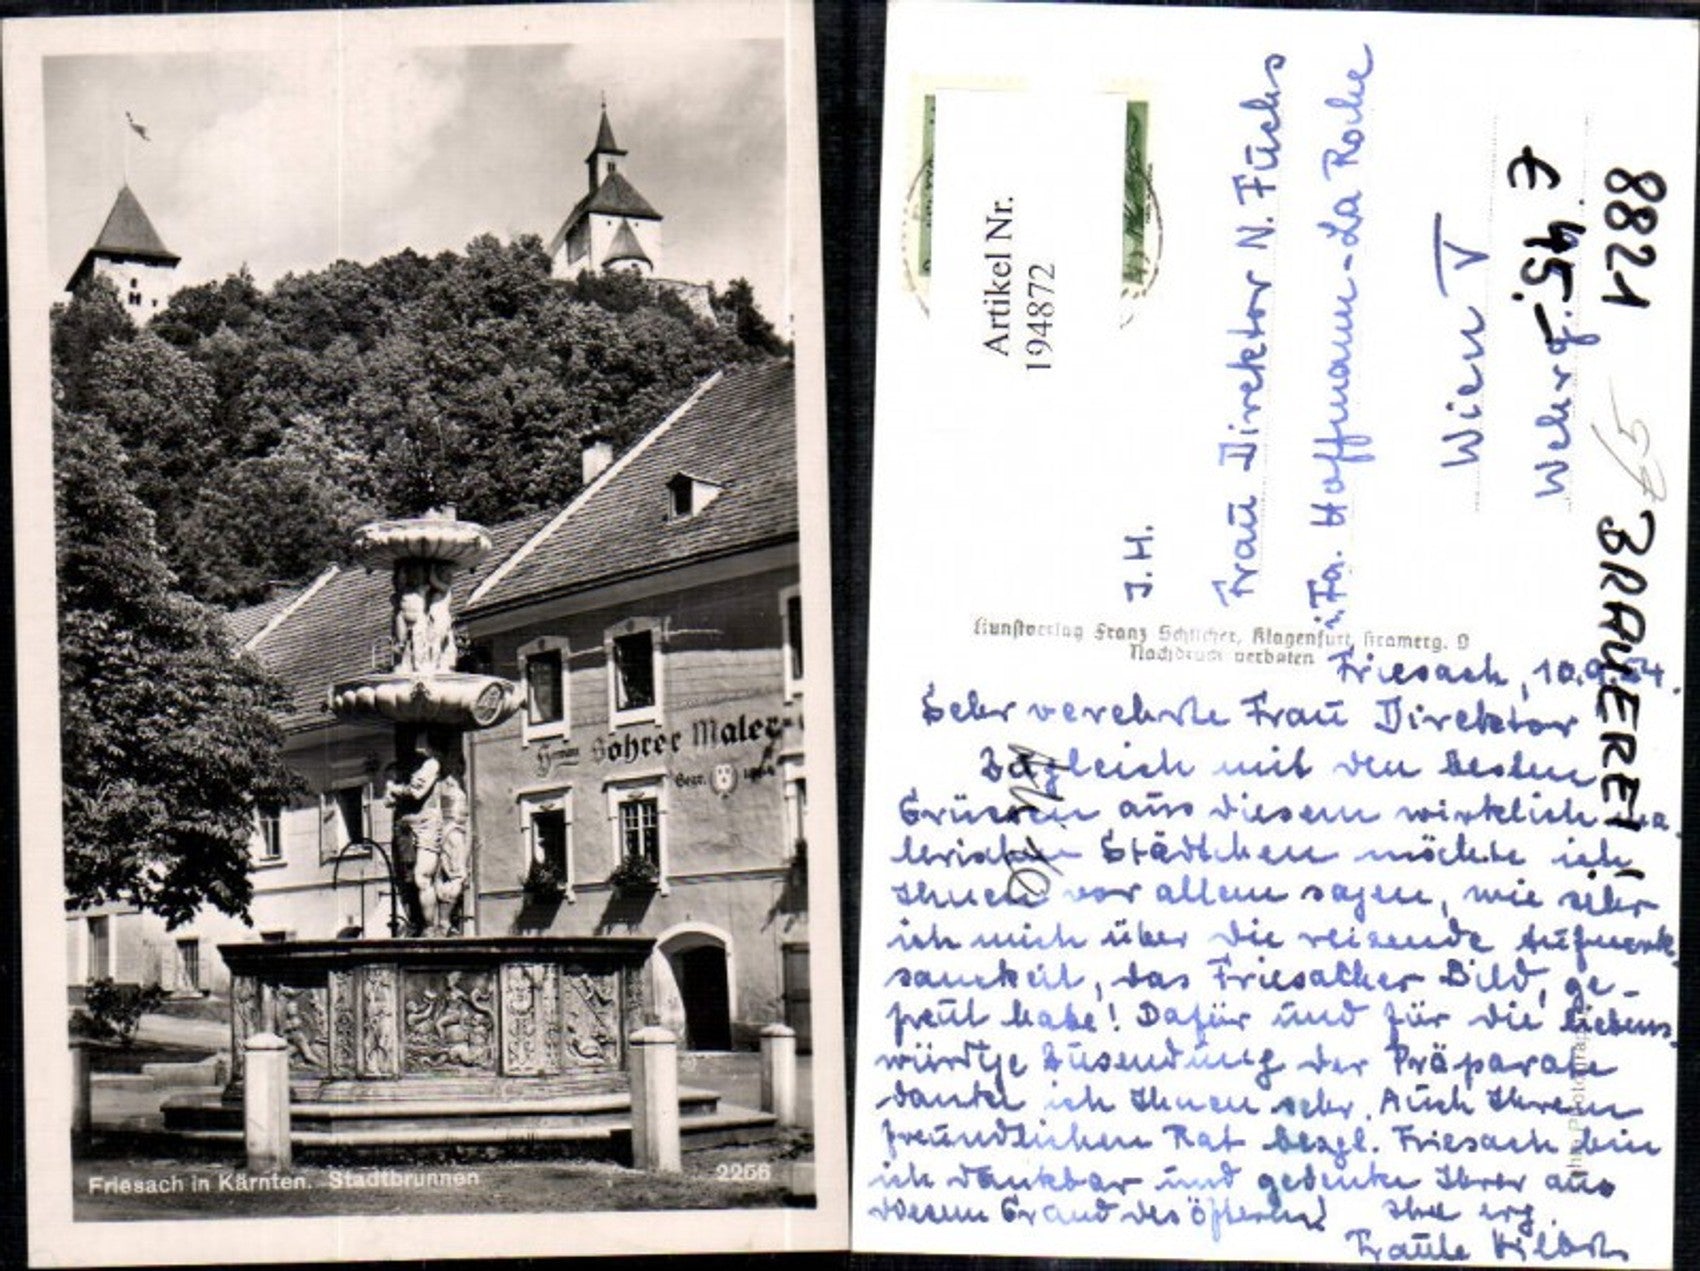 Hermann Bohrer Maler-
Gegr. 1904
Friesach in Kärnten. Stadtbrunnen
2266
Artikel Nr.
194872
I. H.
Frau Direktor N. Fuchs
i/Fa. Hoffmann-La Roche
Wien V
Wehrg.
€ 95,-
8821
65
BRAUEREI
Kunstverlag Franz Schlicher, Klagenfurt, Kramerg. 9
Nachdruck verboten
Friesach, 10.9.54.
Sehr verehrte Frau Direktor
Zugleich mit den besten
Grüssen aus diesem wirklich ma-
lerischen Städtchen möchte ich
Ihnen vor allem sagen, wie sehr
ich mich über die reizende Aufmerk-
samkeit, das Friesacher Bild, ge-
freut habe! Dafür und für die liebens-
würdige Zusendung der Präparate
danke ich Ihnen sehr. Auch Ihrem
freundlichen Rat bezgl. Friesach bin
ich dankbar und gedenke Ihrer aus
diesem Grund des öfteren! Ihre erg.
Traute